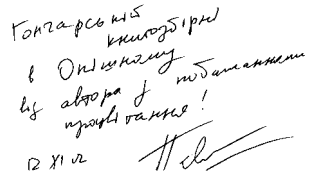 Гончарській
книгозбірні
в Опішному
від автора з побажаннями
процвітання!
12 XI 12